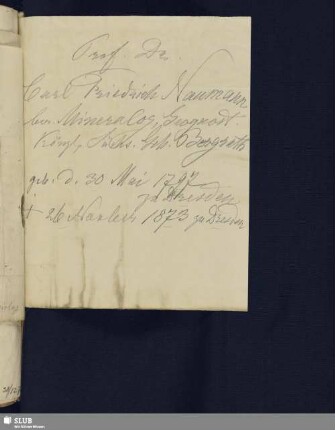 Prof. Dr.
Carl Friedrich Naumann
ber. Mineralog, Geognost
Königl. Sächs. Geh. Bergrath
geb. d. 30 Mai 1797
zu Dresden
† 26 Novbr. 1873 zu Dresden
SLUB
Wir führen Wissen.